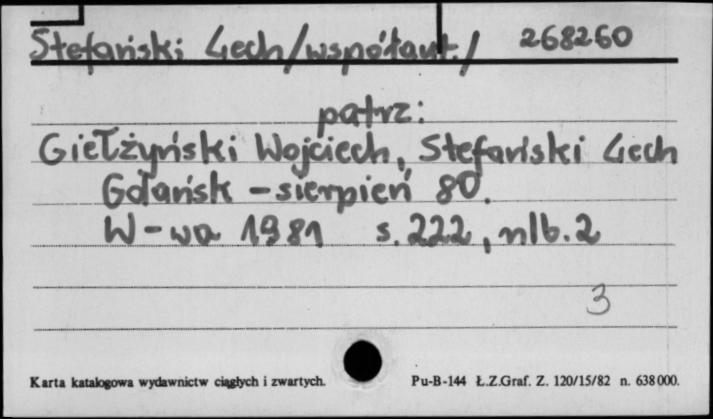 Stefański Lech /współaut./ 268260
patrz:
Giełżyński Wojciech, Stefański Lech
Gdańsk - sierpień 80.
W-wa 1981 s. 222, nlb. 2
3
Karta katalogowa wydawnictw ciągłych i zwartych. Pu-B-144 Ł.Z.Graf. Z. 120/15/82 n. 638000.